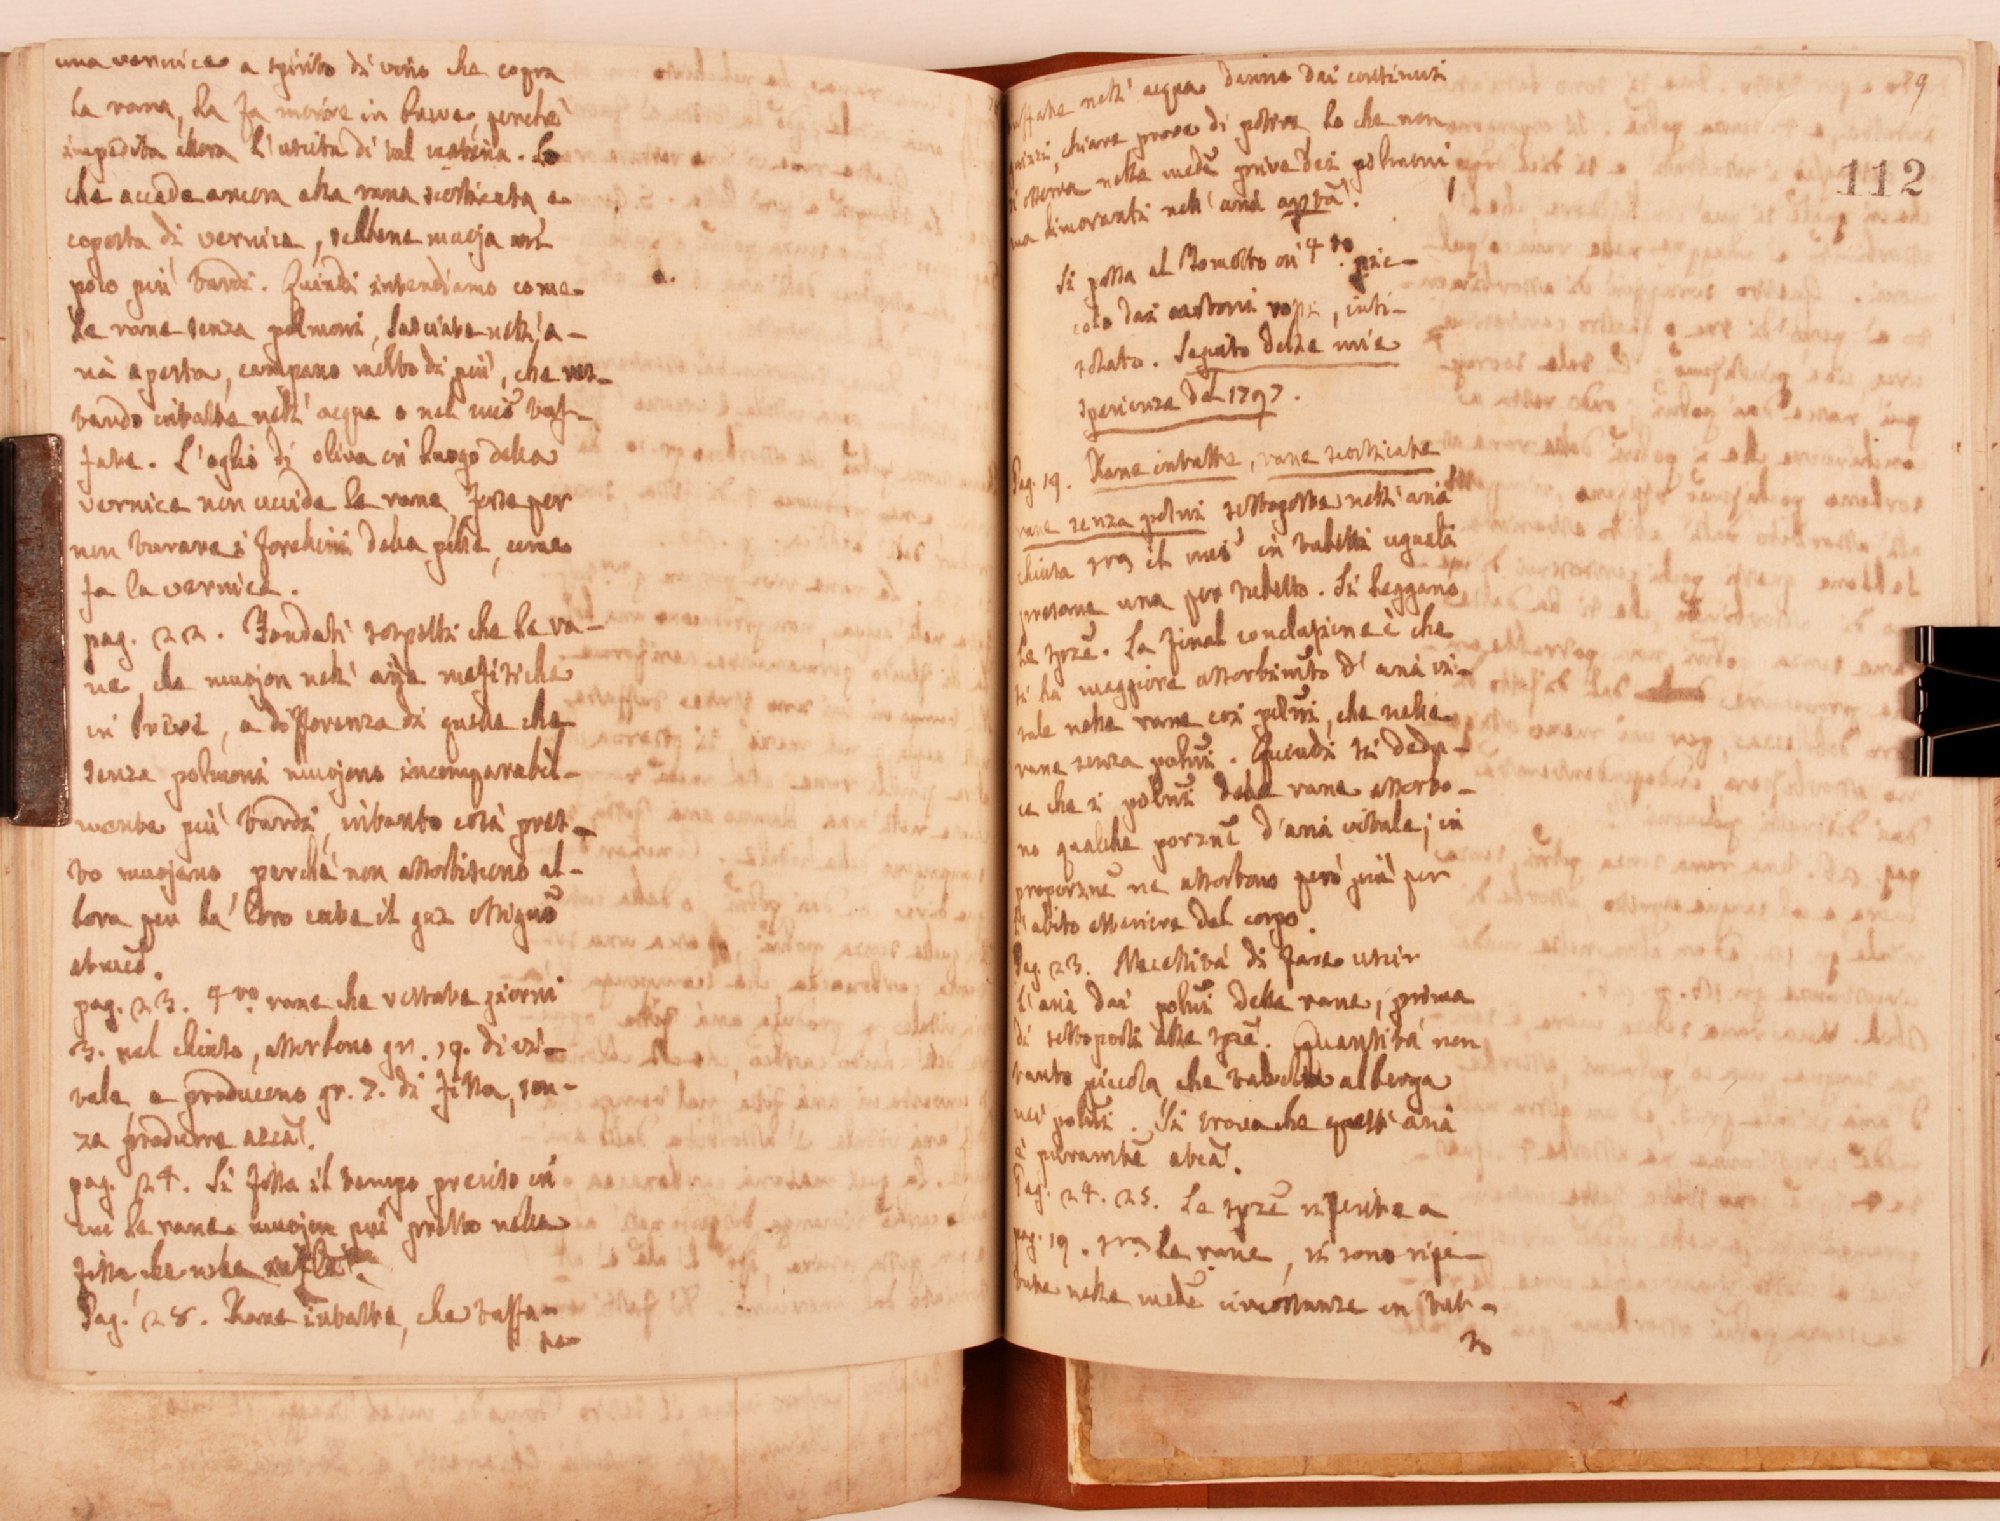 una vernice a spirito di vino che copra
la rana, la fa morire in breve, perchè
impedita allora l'uscita di tal materia. Lo
che accade ancora alla rana scorticata e
coperta di vernice, sebbene muoja un
poco più tardi. Quindi intendiamo come
le rane senza polmoni, lasciate nell'a-
ria aperta, campano molto di più, che res-
tando intatte nell'acqua o nel
. L'oglio di oliva in luogo della
vernice non uccide le rane forse per
non turare i forellini della pelle, come
fa la vernice.
pag. 22. Fondati sospetti che le ra-
ne, che muojon nell'arie mefitiche
in breve, a differenza di quelle che
senza polmoni muojono incomparabil-
mente più tardi, intanto così pres-
to muojano perchè non assorbiscono al-
lora per la loro cute il gaz ossigeno
atmco.
pag. 23. 4ro. rane che restate giorni
3. nel chiuso, assorbono gr. 19. di vi-
tale, e producono gr. 7. di fissa, sen-
za produrre azca.
pag. 24. Si fissa il tempo preciso in
cui le rane muojon più presto nella
fissa, che nella
Pag. 28. Rane intatte, che tuffa-
te
79
112
tuffate nell'acqua danno dai continui
, chiare prove di potere lo che non
si osserva nelle medē prive dei polmoni,
ma dimoranti nell'aria aperta.
Si passa al Tometto in 4to. pic-
colo dai cartoni rossi, inti-
tolato. Seguito delle mie
sperienze del 1797.
Pag. 19. Rane intatte, rane scorticate
rane senza polmi sottoposte nell'aria
chiusa in tubetti uguali
presane una per tubetto. Si leggano
le sprzē. La final conclusione è che
si ha maggiore assorbimto d'aria vi-
tale nelle rane coi polmi, che nelle
rane senza polmi. Quindi si dedu-
ce che i polmi delle rane assorbo-
no qualche porznē d'aria vitale; in
proporznē ne assorbono però più per
l'abito esteriore del corpo.
Pag. 23. Necessità di fare uscir
l'aria dai polmi delle rane, prima
di sottoporli alle sprzē. Quantità non
tanto piccola, che talvolta alberga
nei polmi. Si trova che quest'aria
è puramtē atca.
Pag. 24. 25. Le sprzē riferite a
pag. 19. le rane, si sono ripe-
tute nelle medē circostanze in tub-
to